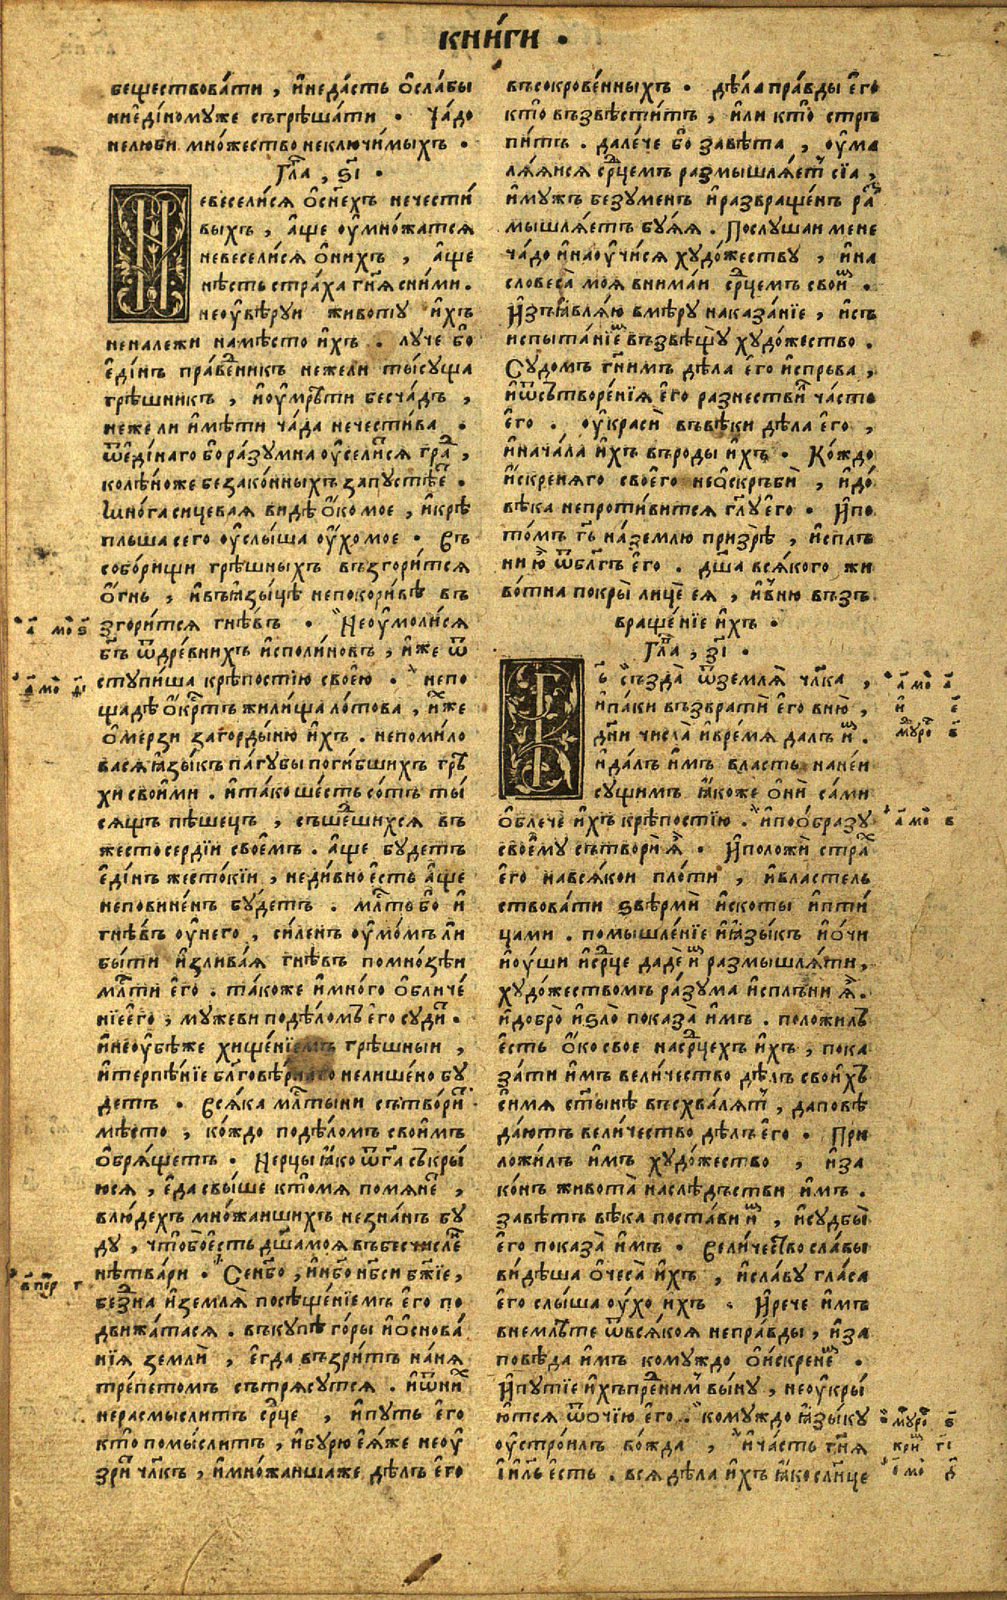 книги .
беществовати , ѝнедасть ѻ҆слабы
ниѐдіномуже съгрѣшати . Чадо
нелюби множество неключимыхъ .
Гла҃ , ѕ҃і .
Невеселися ѻ҆сн҃ехъ нечести
выхъ , а҆ще оу҆множатся
невеселися ѻ҆нихъ , а҆ще
нѣсть страха гн҃я сними .
неоу҆вѣруи животу и҆хъ
неналежи намѣсто и҆хъ . луче бо
є҆дінъ пра́ведникъ нежели тысуща
грѣшникъ , и҆оу҆мрѣти бесчадъ ,
нежели и҆мѣти чада нечестива .
ѿє҆дінаго бо разумна оу҆селися гра̑ ,
колѣноже безаконныхъ запустѣе̑ .
Многа сицевая видѣ ѻ҆ко мое , и҆крѣ
пльша сего оу҆слыша оу҆хо мое . Въ
соборищи грѣшныхъ възгорится
ѻ҆гнь , и҆въꙗ҆зыцѣ непокоривѣ въ
згорится гнѣвъ . Неоу҆молися
бг҃ъ ѿдревнихъ и҆сполиновъ , и҆же ѿ
ступиша крѣпостію своею . непо
щадѣ ѻ҆крⷭ҇тъ жилища лотова , и҆хже
ѻ҆мерзи загордыню и҆хъ . непомило
вася ꙗ҆зыкъ пагубы погибшихъ грѣ
хи своими . и҆тако шесть сотъ ты
сящъ пѣшецъ , съшеⷣшихся въ
жестосердіи своемъ . а҆ще будетъ
є҆дінъ жестокіи , недивно есть а҆ще
неповиненъ будетъ . млⷭ҇ть бо и҆
гнѣвъ оу҆него , силенъ оу҆момъли
быти и҆зливая гнѣвъ помнозѣи
млⷭ҇ти є҆го . такоже и҆много ѻ҆бличе
ніеє҆го , мужеви подѣломъ є҆го судит .
и҆неоу҆бѣже хищеніемъ грѣшныи ,
и҆терпѣніе благовѣрнаго нелишено бу
детъ . Всяка млⷭ҇тыни сътворит
мѣсто , кождо подѣломъ своимъ
ѻ҆брящетъ . Нерцы ꙗ҆ко ѿг҃а съкры
юся , є҆да свыше ктомя помянет ,
влюдехъ множаишихъ незнанъ бу
ду , чтобоесть дш҃амоя въбесчисле
нѣтвари . Сенбо , и҆нбо нбси бж҃іе ,
бездна и҆земля посѣщеніемъ є҆го по
движатася . въкупѣ горы и҆ѻ҆снова
нія земли , є҆гда възритъ наня
трепетомъ сътрясутся . и҆ѡ҆них
нерасмыслитъ срⷣце , и҆путь є҆го
кто помыслитъ , и҆бурю єяже неоу҆
зрит чл҃къ , и҆множаишаже дѣлъ є҆го
въсокровенныхъ . дѣла правды є҆го
кто възвѣститъ , и҆ли кто стръ
питъ . далече бо завѣта , оу҆ма
ляяися срⷣцемъ размышляет сіа ,
и҆мужъ безуменъ и҆развращенъ ра
мышляетъ буяя . Послушаи мене
чадо и҆наоу҆чися художеству , и҆на
словеса моя внимаи срⷣцемъ своим .
И҆зъꙗ҆вляю вмѣру наказаніе , и҆съ
испытаніем възвѣщу художество .
Судомъ гн҃имъ дѣла є҆го и҆сперва ,
и҆ѿсътворенія є҆го разнестви часто
є҆го . оу҆краси въвѣки дѣла є҆го ,
и҆начала и҆хъ въроды и҆хъ . Кождо
и҆скреняго своего неѻ҆скръби , и҆до
вѣка непротивится гл҃у є҆го . И҆по
томъ гь҃ наземлю призрѣ , и҆сплъ
ни ю ѿблгъ є҆го . дш҃а всякого жи
вотна покры лице ея , и҆вню възъ
вращеніе и҆хъ .
Гла҃ , з҃і .
Бг҃ъ създа ѿземля чл҃ка ,
и҆паки възврати є҆го вню ,
дни числа и҆время далъ им .
и҆далъ и҆мъ власть нанеи
сущимъ ꙗ҆коже ѻ҆ни сами
ѻ҆блече и҆хъ крѣпостію . и҆поѻ҆бразу
своему сътвори я . И҆положи страх
є҆го навсякои плоти , и҆властель
ствовати ѕвѣрми и҆скоты и҆пти
цами . помышленіе и҆ꙗ҆зыкъ и҆ѻчи
и҆оу҆ши и҆срⷣце даде им размышляти ,
художествомъ разума и҆сплъни я .
и҆добро и҆ѕло показа и҆мъ . положилъ
есть ѻ҆ко свое насрⷣцехъ и҆хъ , пока
зати и҆мъ величество дѣлъ своихъ
є҆имя ст҃ынѣ въсхвалят , даповѣ
даютъ величество дѣлъ є҆го . При
ложилъ и҆мъ художество , и҆за
конъ живота наслѣдъстви и҆мъ .
завѣтъ вѣка постави им , и҆судбы
є҆го показа и҆мъ . Величество славы
видѣша ѻ҆чеса и҆хъ , и҆славу гласа
є҆го слыша оу҆хо ихъ . И҆рече и҆мъ
внемлѣте ѿвсякоя неправды , и҆за
повѣда и҆мъ комуждо ѻ҆искренем .
И҆путіе и҆хъпреⷣним выну , неоу҆кры
ются ѿочію є҆го . комуждо ꙗ҆зыку
оу҆строилъ вожда , и҆часть гн҃я
і҆и҃ль есть . вся дѣла и҆хъ ꙗ҆ко слн҃це